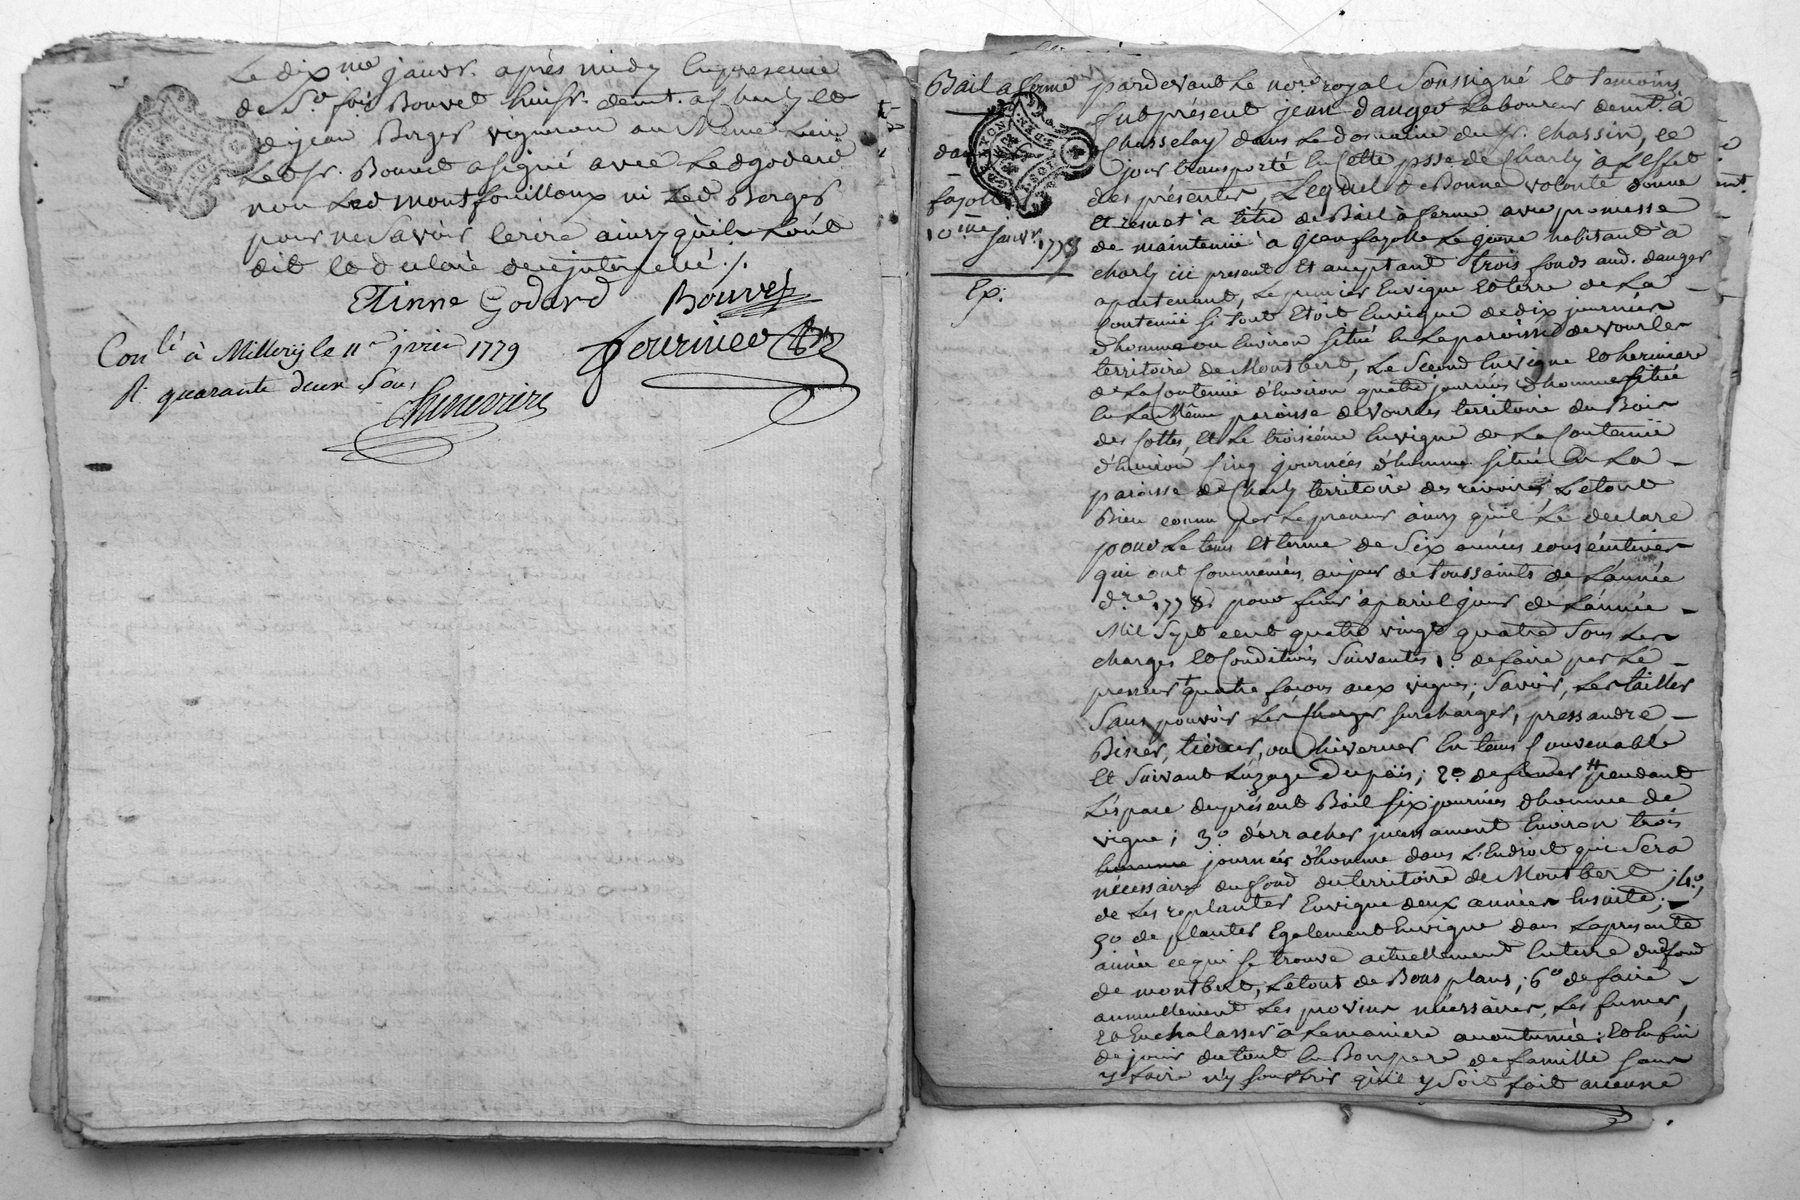 Le dix.me janvr. après midy en presence
de Sr. fois Bouvet huissr. demt. a Charly et
de jean Berger vigneron au Meme Lieu
Ledt sr. Bouvet a signé avec Led godard
non Led montfouilloux ni Led Berger
pour ne Savoir ecrire ainsy qu'ils L'ont
dit et declaré de ce interpellé ./.
Etinne Godard Bouvet
Conlé à Millery le 11e jvier 1779
R. quarante deux Sous
Bail a ferme
dan
fayolle
10.me Janvr. 1779
Ex:
pardevant Le nore. royal Soussigné et temoins
fut présent jean danger Laboureur demt. à
Chasselay dans Le domaine du sr. chassin, ce
jour transporté en Cette psse de Charly à L'effet
des présentes, Lequel de Bonne volonté donne
et remet a titre de Bail à ferme avec promesse
de maintenir à jean fayolle Le jeune habitant à
charly ici present et acceptant trois fonds aud. danger
apartenant, Le premier en vigne et terre de La
Contenüe si tout etoit en vigne de dix journées
d'homme ou Environ situé en La paroisse de vourles
territoire de Montbert, Le Second en vigne et herminere
de La Contenüe d'environ quatre journées d'homme située
en La Même paroisse de vourles territoire du Bois
des Cottes et Le troisiéme en vigne de La Contenüe
d'environ Cinq journées d'homme situé en La
paroisse de Charly territoire des revoires, Le tout
Bien connu par Le preneur ainsy qu'il Le declare
pour Le tems et terme de Six années consécutives
qui ont Commencées au jour de toussaints de L'année
dre. 1778 pour finir a pareil jour de L'année
Mil Sept cent quatre vingt quatre Sous Les
charges et Conditions Suivantes 1.° de faire par Le
preneur quatre façons aux vignes; Savoir, Les tailler
Sans pouvoir Les Charger surcharger, pressandre
Biner, tiercer, ou hiverner en tems Convenable
et Suivant L'uzage du païs; 2.° de fumer pendant
L'espace du présent Bail six journées d'homme de
vigne; 3.° d'arracher incessament Environ trois
journées d'homme dans L'Endroit qui Sera
nécessaire du fond du territoire de Montbert; 4.°
de Les replanter En vigne deux années Ensuite;
5.° de planter Egalement en vigne dans La presente
année ce qui se trouve actuellement en terre dud fond
de montbert, Le tout de Bons plans; 6.° de faire
annuellement Les provins nécessaires, Les fumer,
et Enchalasser a La maniere acoutumée: et Enfin
de jouir du tout en Bon pere de famille sans
y faire n'y souffrir qu'il y Soit fait aucune